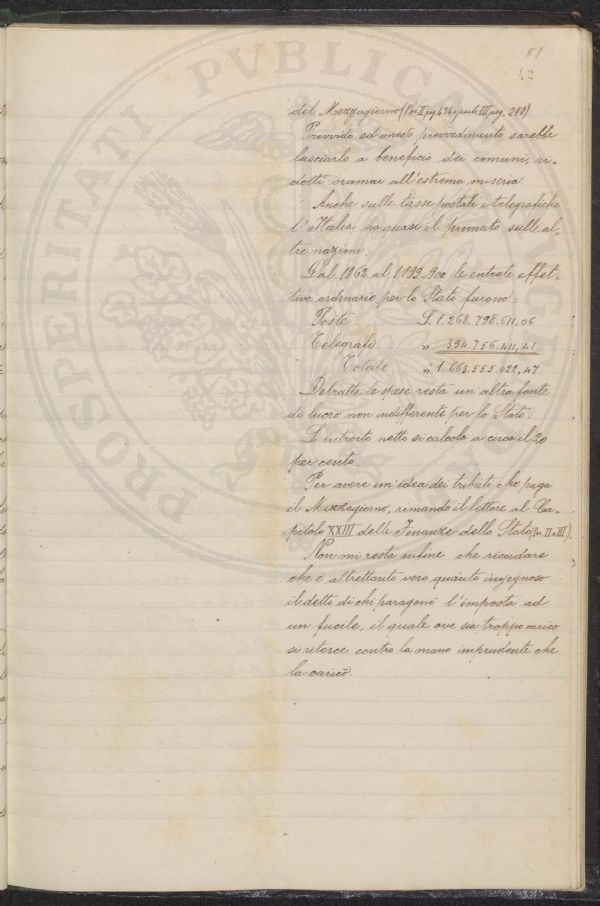 81
42
del Mezzogiorno (Par. II pag. 434, parte III pag. 290)
Provvido ed onesto provvedimento sarebbe
lasciarlo a beneficio dei comuni, ri-
dotti oramai all'estrema miseria.
Anche sulle tasse postali e telegrafiche
l'Italia ha quasi il primato sulle al-
tre nazioni.
Dal 1862 al 1899-900 le entrate effet-
tive ordinarie per lo Stato furono:
Poste £. 1.268.798.611,06
Telegrafi " 394.756.411,41
Totale " 1.663.555.022,47
Detratte le spese resta un'altra fonte
di lucro non indifferente per lo Stato.
L'introito netto si calcola a circa il 20
per cento.
Per avere un'idea dei tributi che paga
il Mezzogiorno, rimando il lettore al Ca-
pitolo XXIII delle Finanze dello Stato (Par. II e III).
Non mi resta infine che ricordare
che è altrettanto vero quanto ingegnoso
il detto di chi paragonò l'imposta ad
un fucile, il quale ove sia troppo carico
si ritorce contro la mano imprudente che
la caricò.
PROSPERITATI PVBLICAE